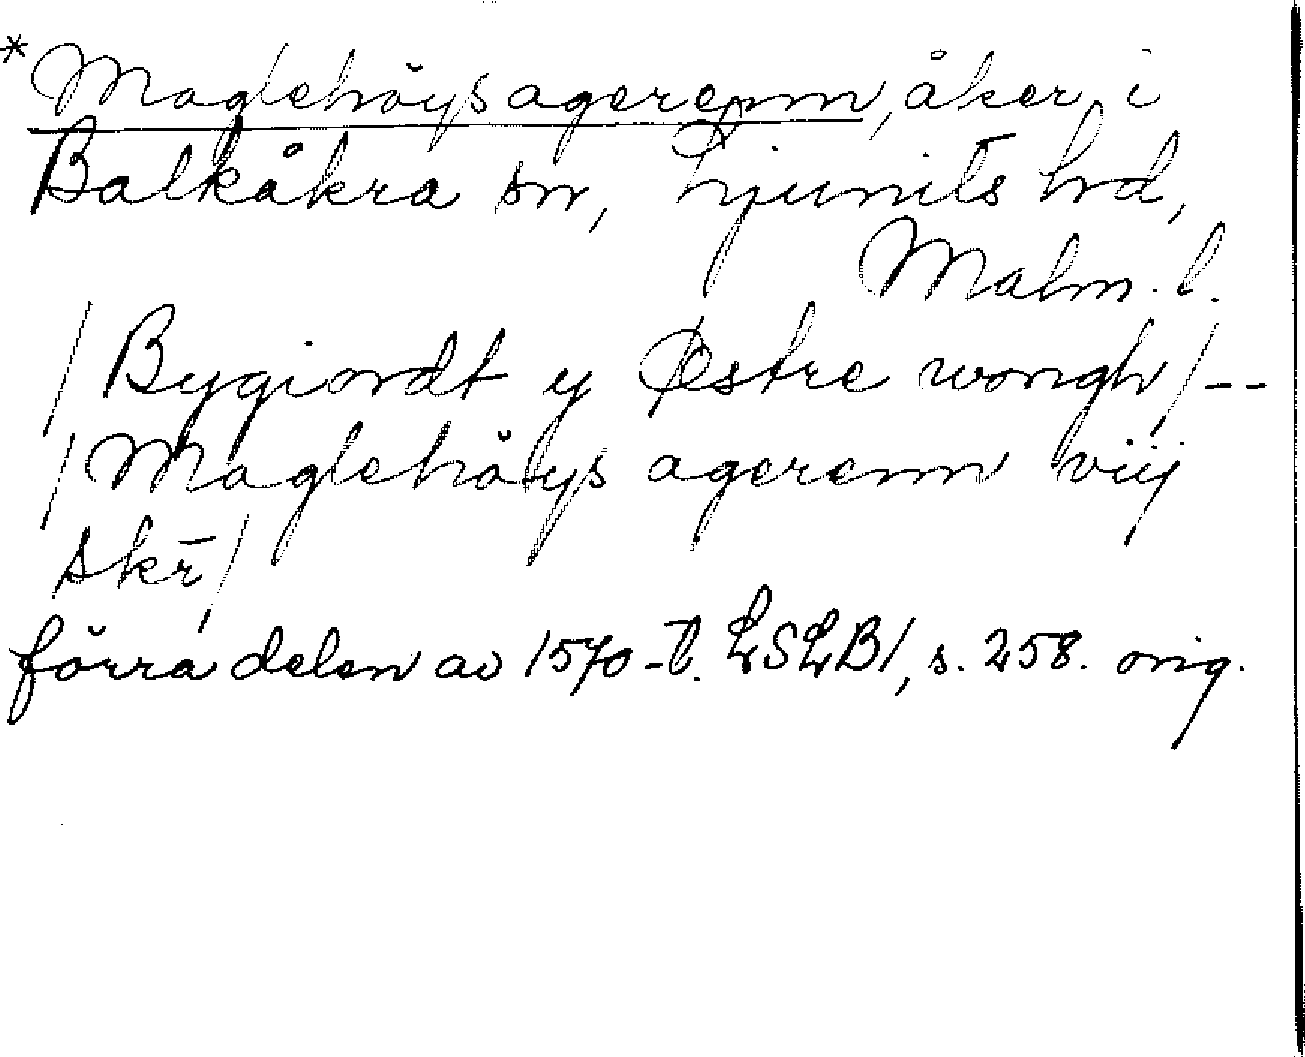 *Maglehöysagerenn, åker i
Balkåkra sn, Ljunits hd,
Malm. l.
/Bygiordt y Østre wongh/--
/Maglehöys agerenn viij
skr̄/
förra delen av 1570-t. LSLB1, s. 258. orig.